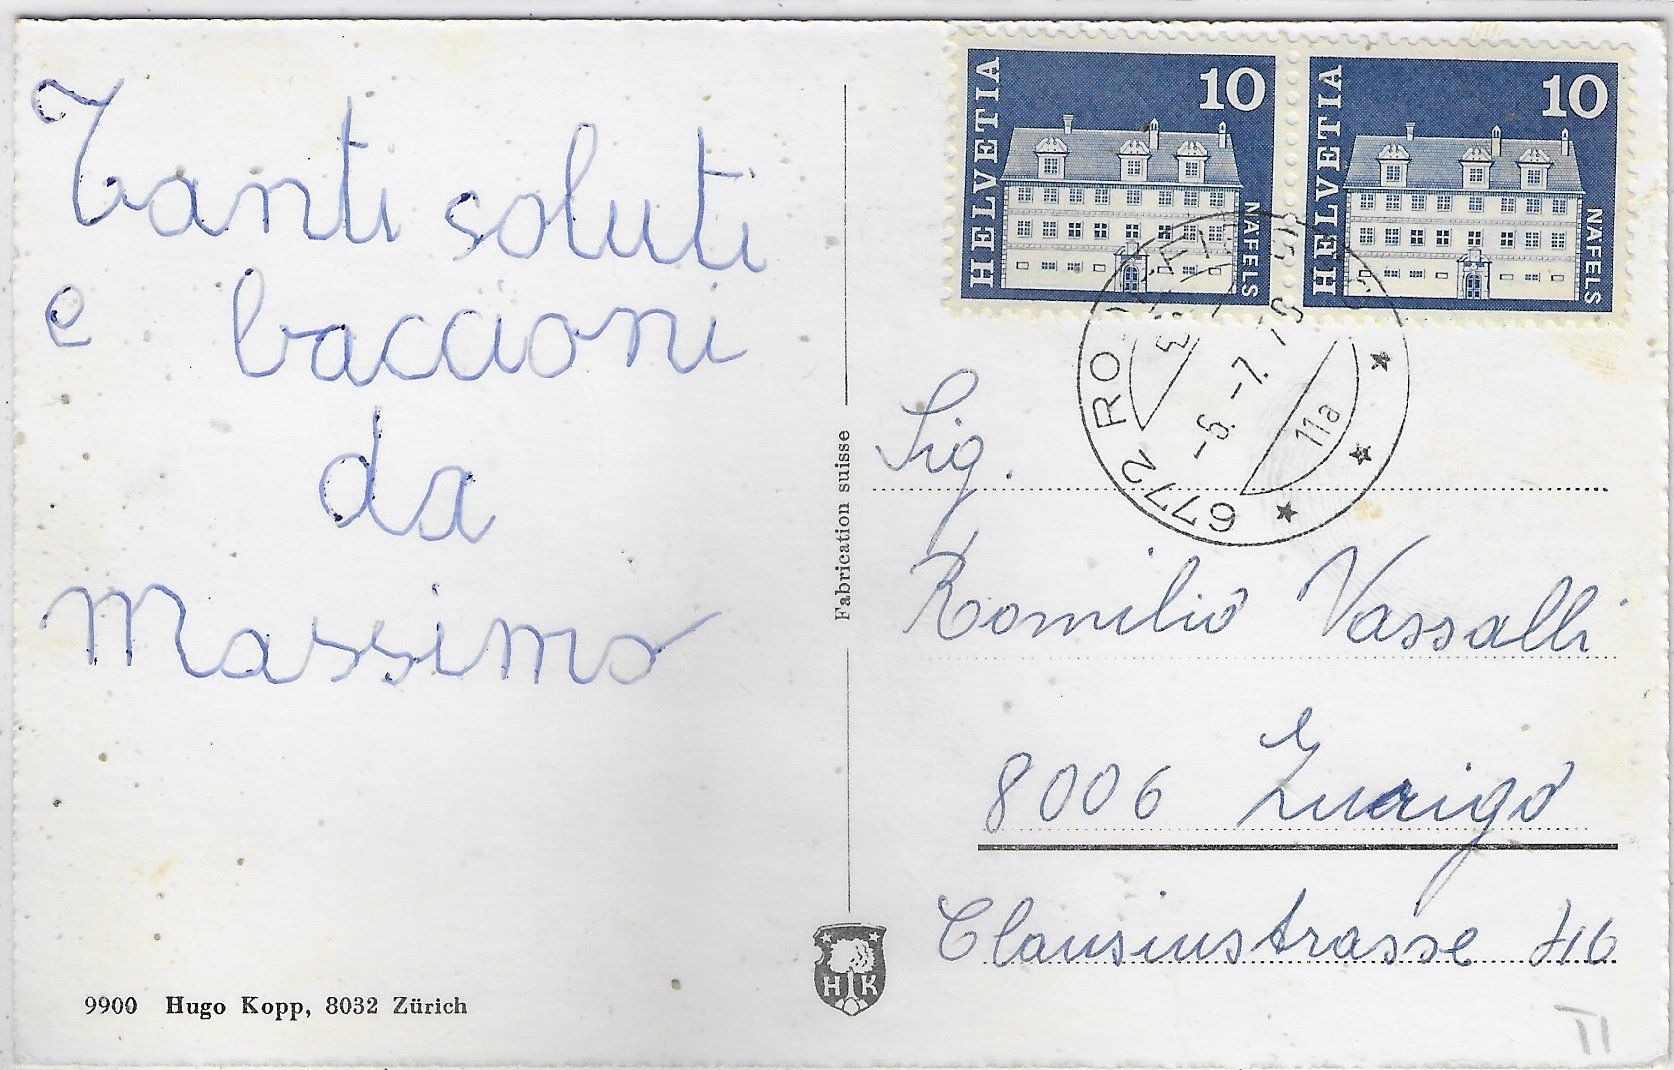 Tanti soluti
e baccioni
da
Massimo
9900 Hugo Kopp, 8032 Zürich
Fabrication suisse
HK
HELVETIA
10
NÄFELS
HELVETIA
10
NÄFELS
6772 RO
-6.-7.70
11a
Sig.
Romilio Vassalli
8006 Zurigo
Clausiusstrasse 46